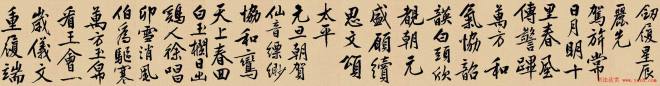 劔履星辰
麗先
駕旂常
日月明十
里春風
傳警蹕
萬方和
氣協韶
韺白頭欣
覩朝元
盛願續
思文頌
太平
元旦朝賀
仙音縹緲
協和鸞
天上春回
白玉欄日出
鷄人徐唱
卯雪消風
伯驅寒
萬方玉帛
看王會一
歲儀文
重履端